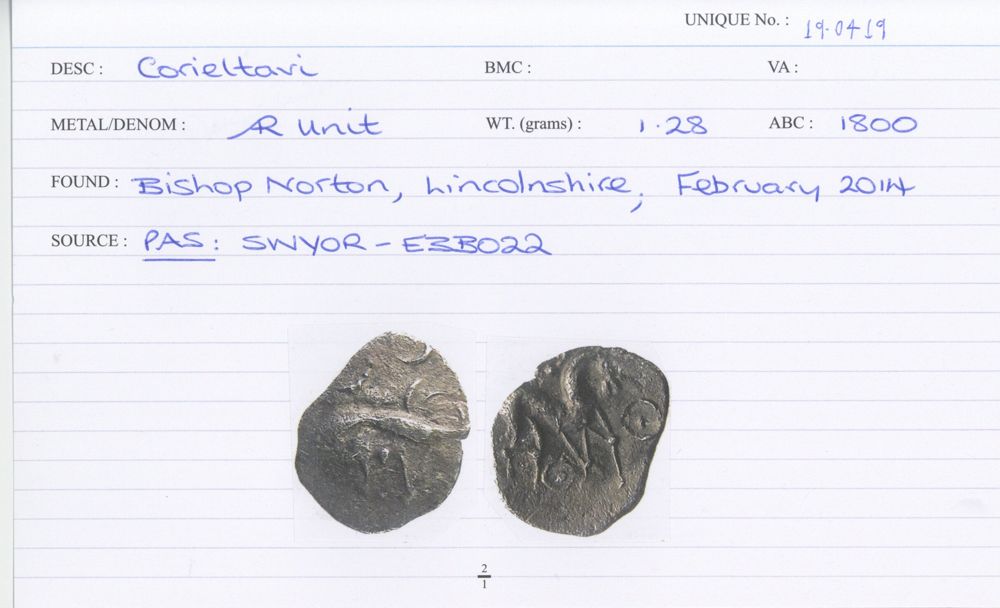 UNIQUE No. : 19.0419
DESC : Corieltavi BMC : VA :
METAL/DENOM : AR Unit WT. (grams) : 1.28 ABC : 1800
FOUND : Bishop Norton, Lincolnshire, February 2014
SOURCE : PAS: SWYOR - E3B022
2
1